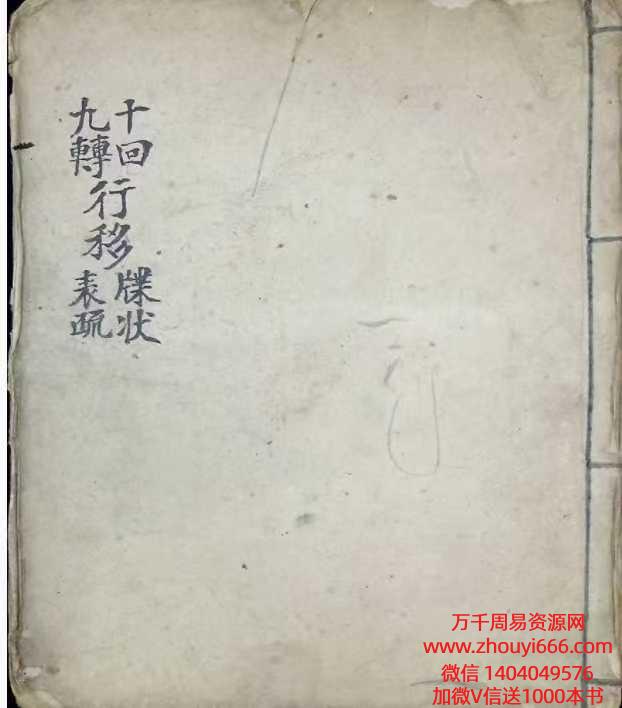 十回
九轉
行移
牒状
表疏
万千周易资源网
www.zhouyi666.com
微信 1404049576
加微V信送1000本书